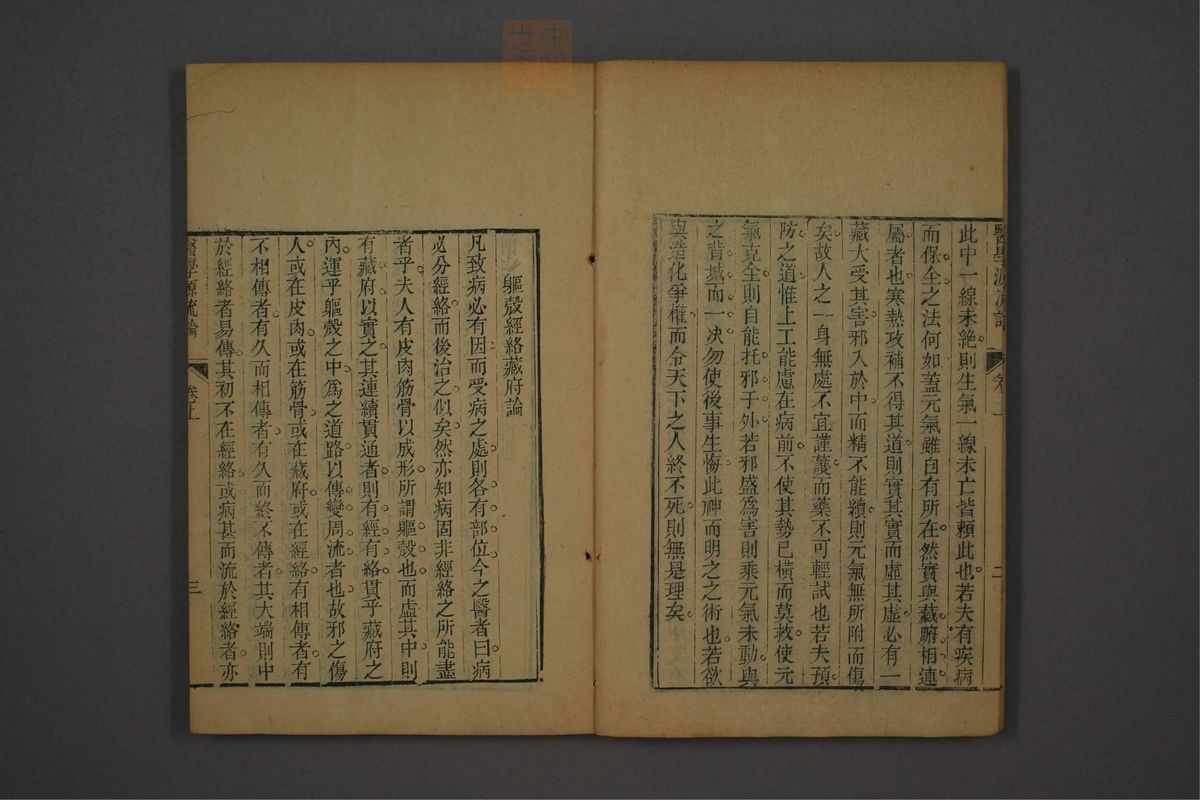 醫學源流論
卷上
二
此中一線未絕則生氣一線未亡皆賴此也若夫有疾病
而保全之法何如蓋元氣雖自有所在然實與藏腑相連
屬者也寒熱攻補不得其道則實其實而虛其虛必有一
藏大受其害邪入於中而精不能續則元氣無所附而傷
矣故人之一身無處不宜謹護而藥不可輕試也若夫預
防之道惟上工能慮在病前不使其勢已橫而莫救使元
氣克全則自能托邪于外若邪盛為害則乘元氣未動與
之背城而一决勿使後事生悔此神而明之之術也若欲
與造化爭權而令天下之人終不死則無是理矣
軀殼經絡藏府論
凡致病必有因而受病之處則各有部位今之醫者曰病
必分經絡而後治之似矣然亦知病固非經絡之所能盡
者乎夫人有皮肉筋骨以成形所謂軀殼也而虛其中則
有藏府以實之其連續貫通者則有經有絡貫乎藏府之
內運乎軀殼之中爲之道路以傳變周流者也故邪之傷
人或在皮肉或在筋骨或在藏府或在經絡有相傳者有
不相傳者有久而相傳者有久而終不傳者其大端則中
於經絡者易傳其初不在經絡或病甚而流於經絡者亦
醫學源流論
卷上
三